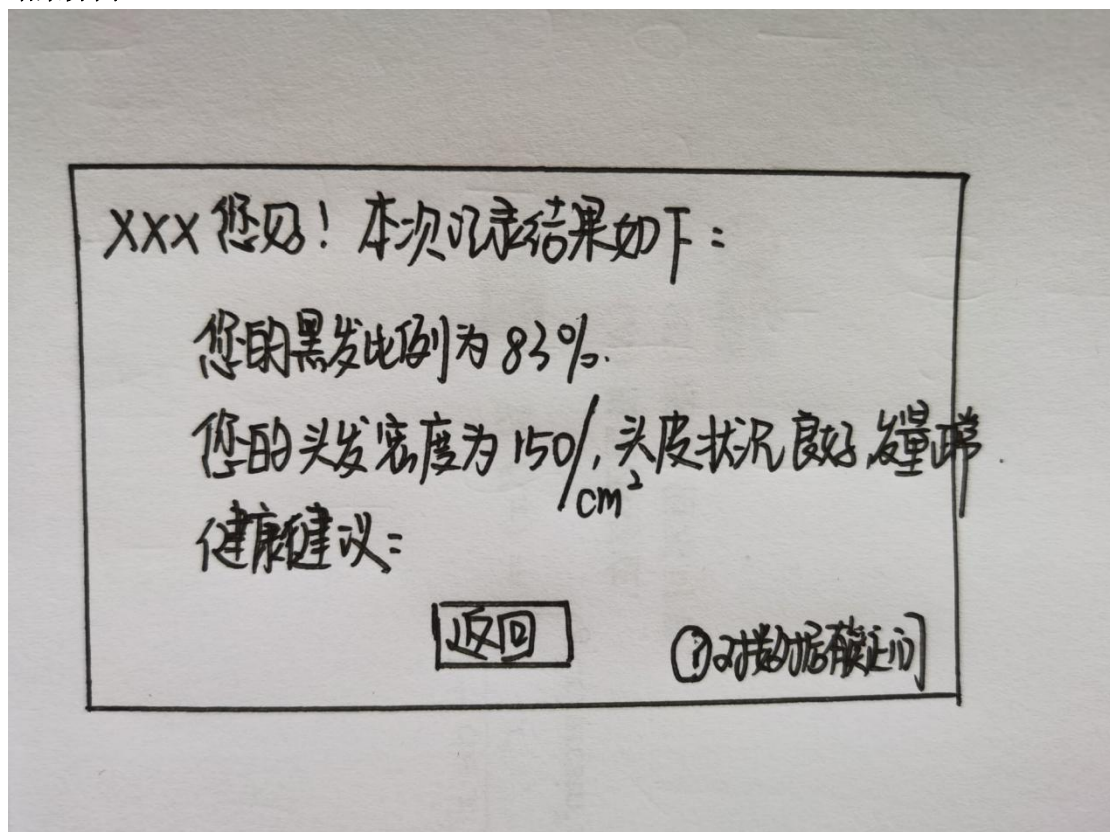 XXX 您好！本次记录结果如下：
您的黑发比例为 83%.
您的头发密度为 150/cm², 头皮状况良好, 发量正常.
健康建议：
返回
? 对数据有疑问